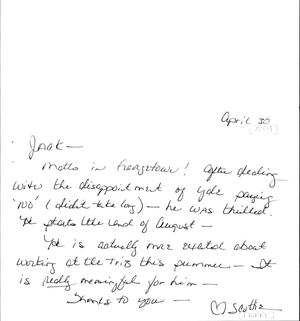 April 30
Jack—
Matt's in Georgetown! After dealing
with the disappointment of Yale saying
'NO' (didn't take long) — he was thrilled.
He starts the end of August —
He is actually more excited about
working at the this summer — It
is really meaningful for him —
Thanks to you —